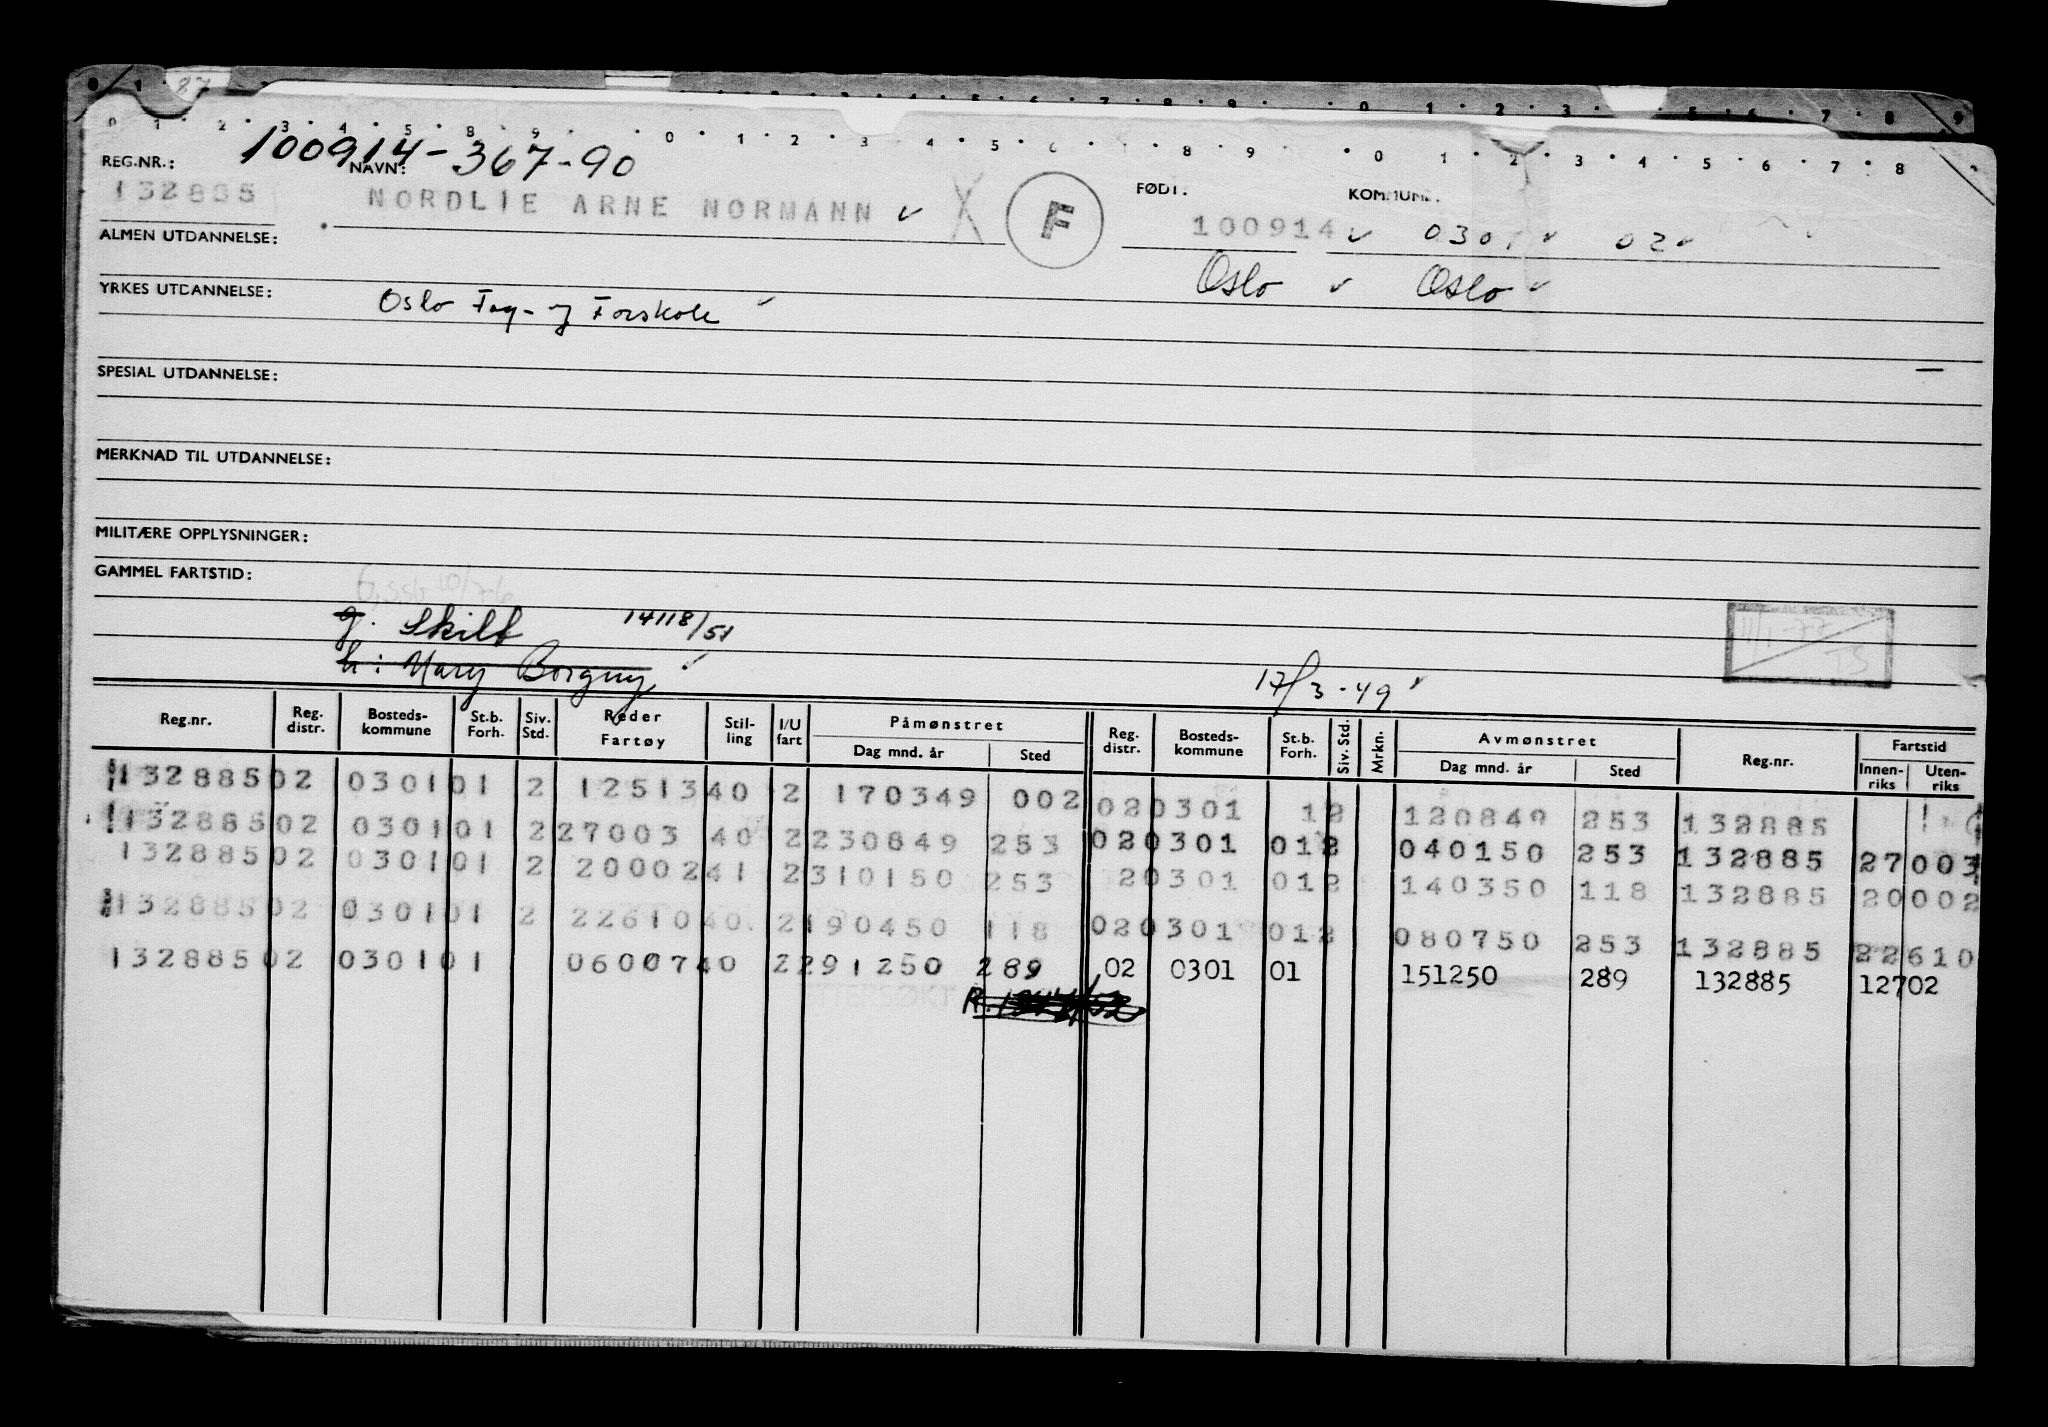 87
100914-367-90
REG.NR.: NAVN: FØDT. KOMMUNE.
132885 NORDLIE ARNE NORMANN F 100914 0301 02
ALMEN UTDANNELSE:
Oslo Oslo
YRKES UTDANNELSE: Oslo Fag- og Forskole
SPESIAL UTDANNELSE:
MERKNAD TIL UTDANNELSE:
MILITÆRE OPPLYSNINGER:
GAMMEL FARTSTID:
g. Skilt 14118/51
h: Mary Borgny
11/1-77 TS
17/3-49
Reg.nr. Reg. distr. Bosteds-kommune St.b. Forh. Siv. Std. Reder Fartøy Stil-ling I/U fart Påmønstret Dag mnd. år Sted Reg. distr. Bosteds-kommune St.b. Forh. Siv. Std. Mrkn. Avmønstret Dag mnd. år Sted Reg.nr. Fartstid Innen-riks Uten-riks
132885 02 0301 01 2 12513 40 2 170349 002 02 0301 1 2 120849 253 132885
132885 02 0301 01 2 27003 40 2 230849 253 02 0301 01 2 040150 253 132885 27003
132885 02 0301 01 2 20002 41 2 310150 253 2 0301 01 2 140350 118 132885 20002
132885 02 0301 01 2 22610 40 2 190450 118 02 0301 01 2 080750 253 132885 22610
132885 02 0301 01 06007 40 2 291250 289 02 0301 01 151250 289 132885 12702
R.